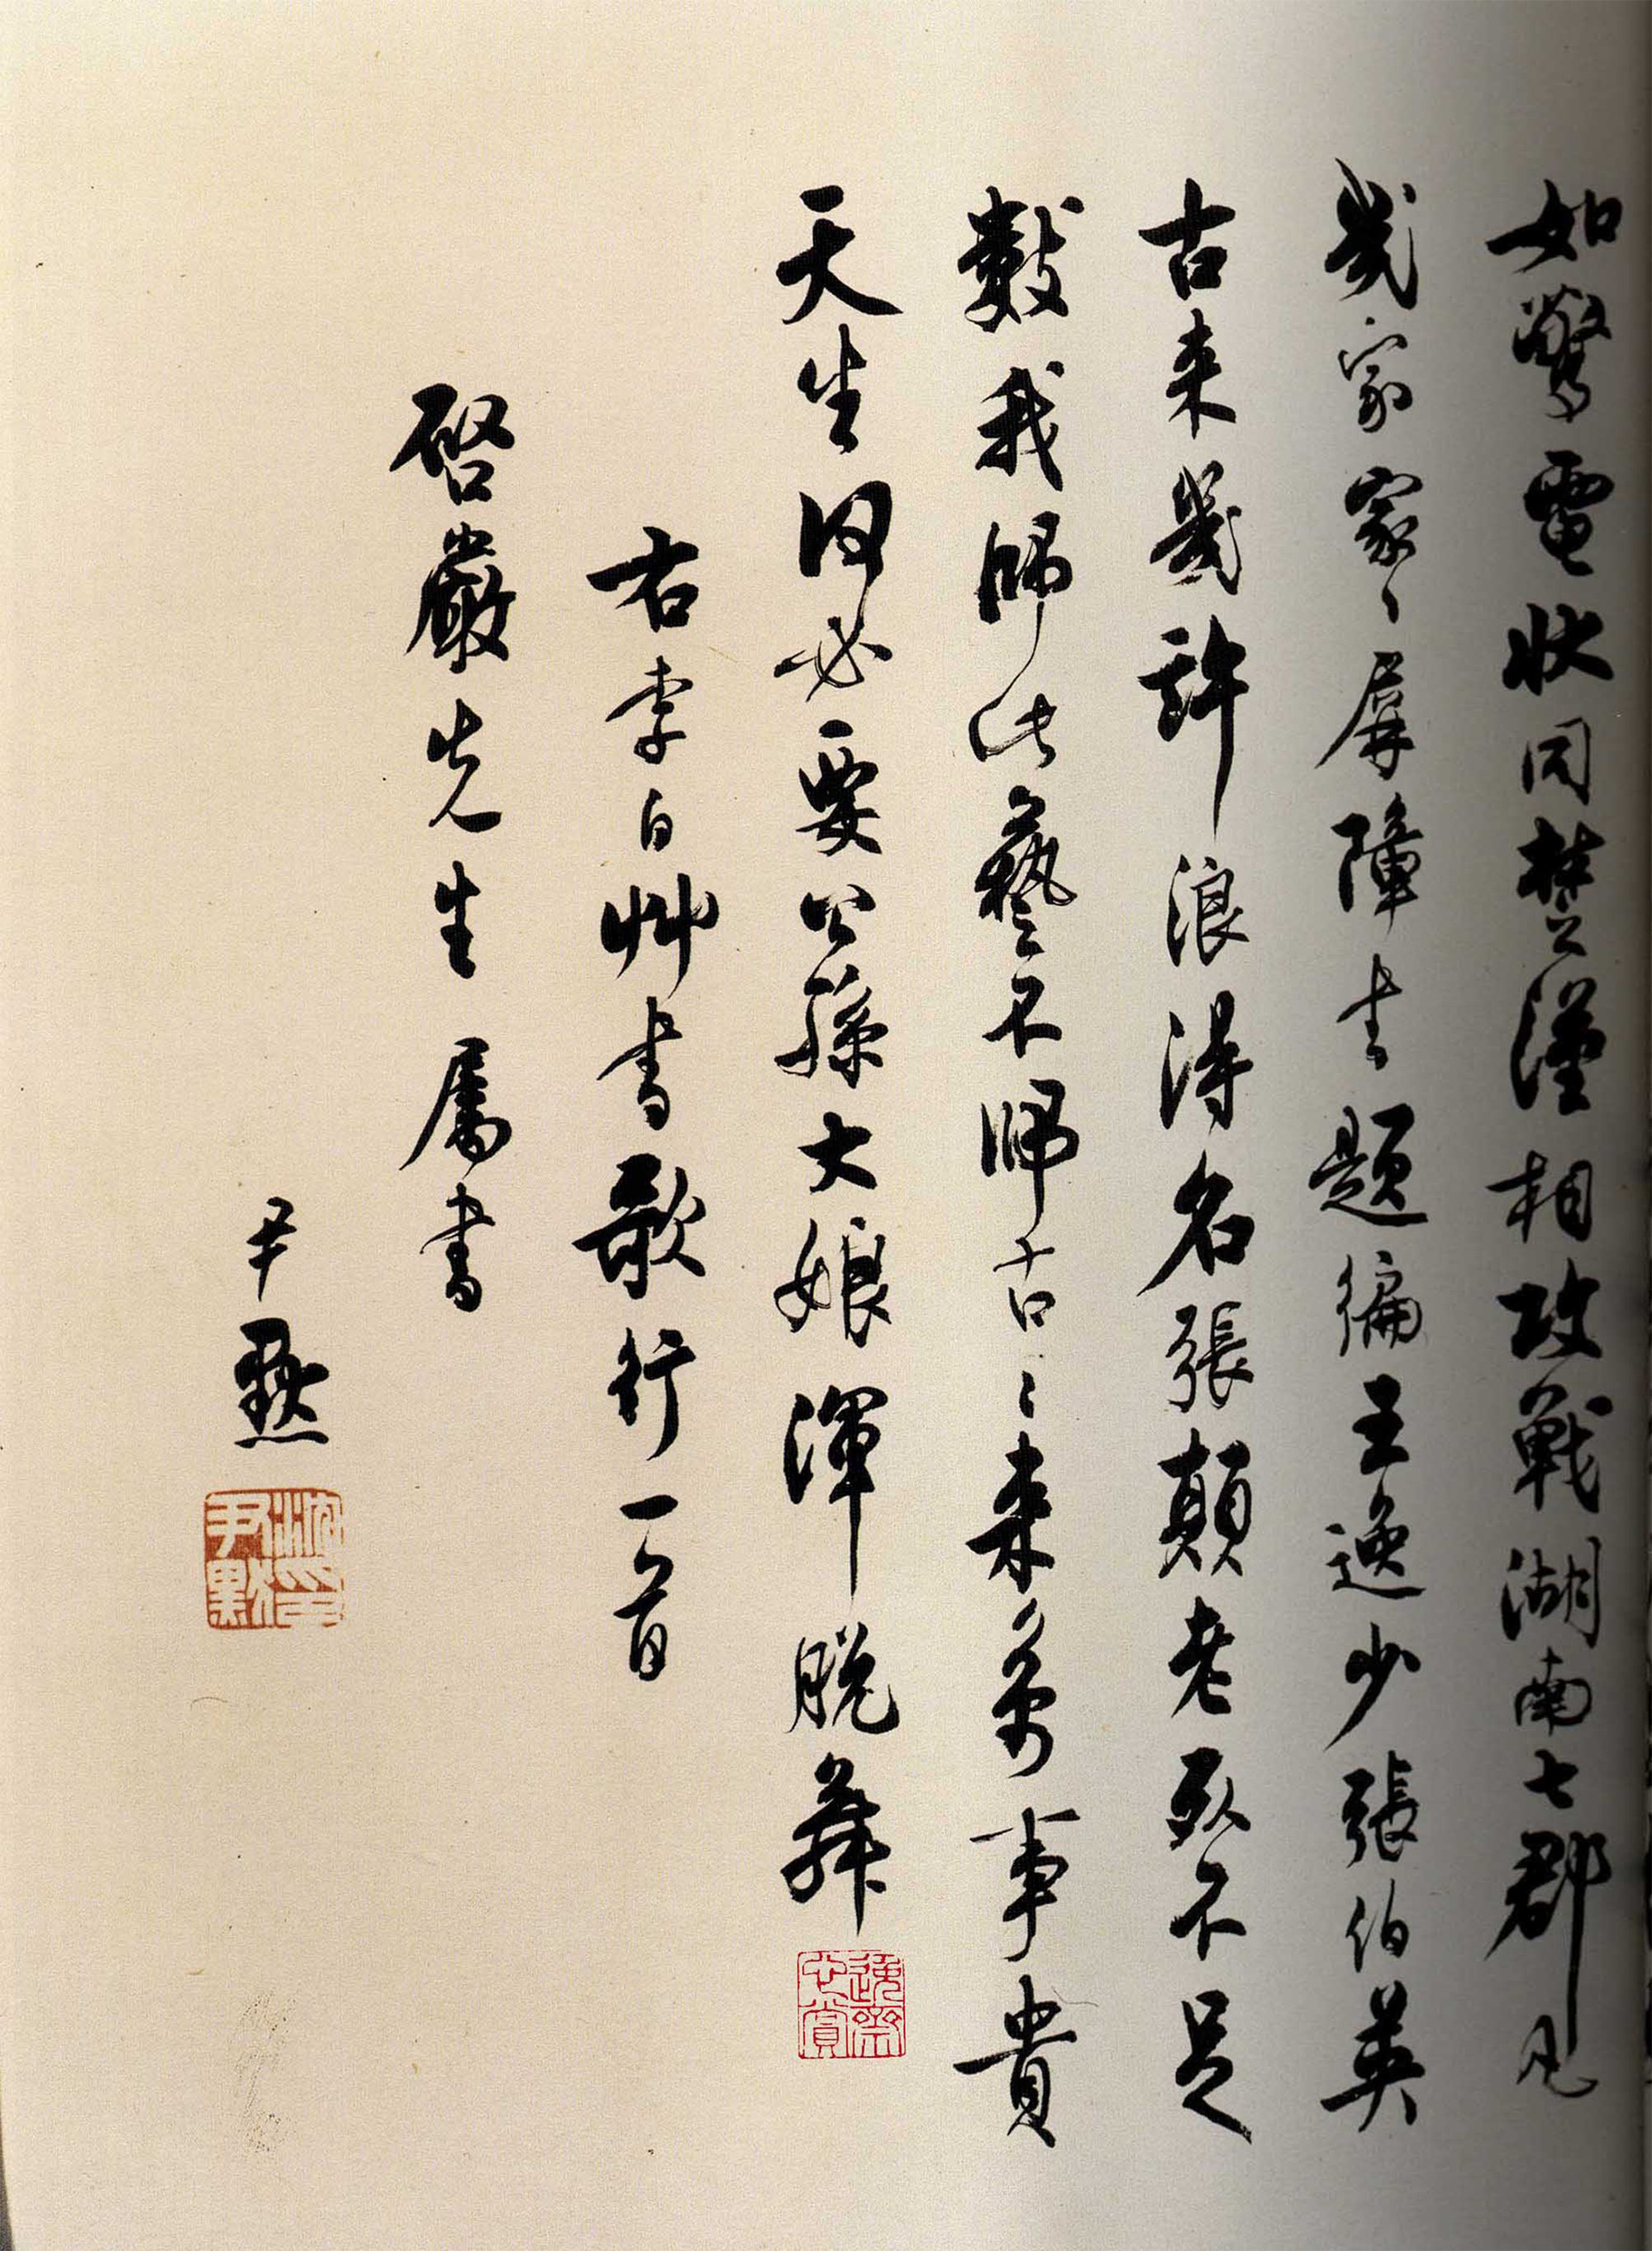 如驚電狀同楚漢相攻戰湖南七郡凡
幾家家家〻屏障書題徧王逸少張伯英
古来幾許浪得名張顛老死不足
數我師此藝不師古〻来萬事貴
天生何必要公孫大娘渾脫舞
右李白艸書歌行一首
啓嚴先生屬書
尹默
沈尹默印
逸齋心賞